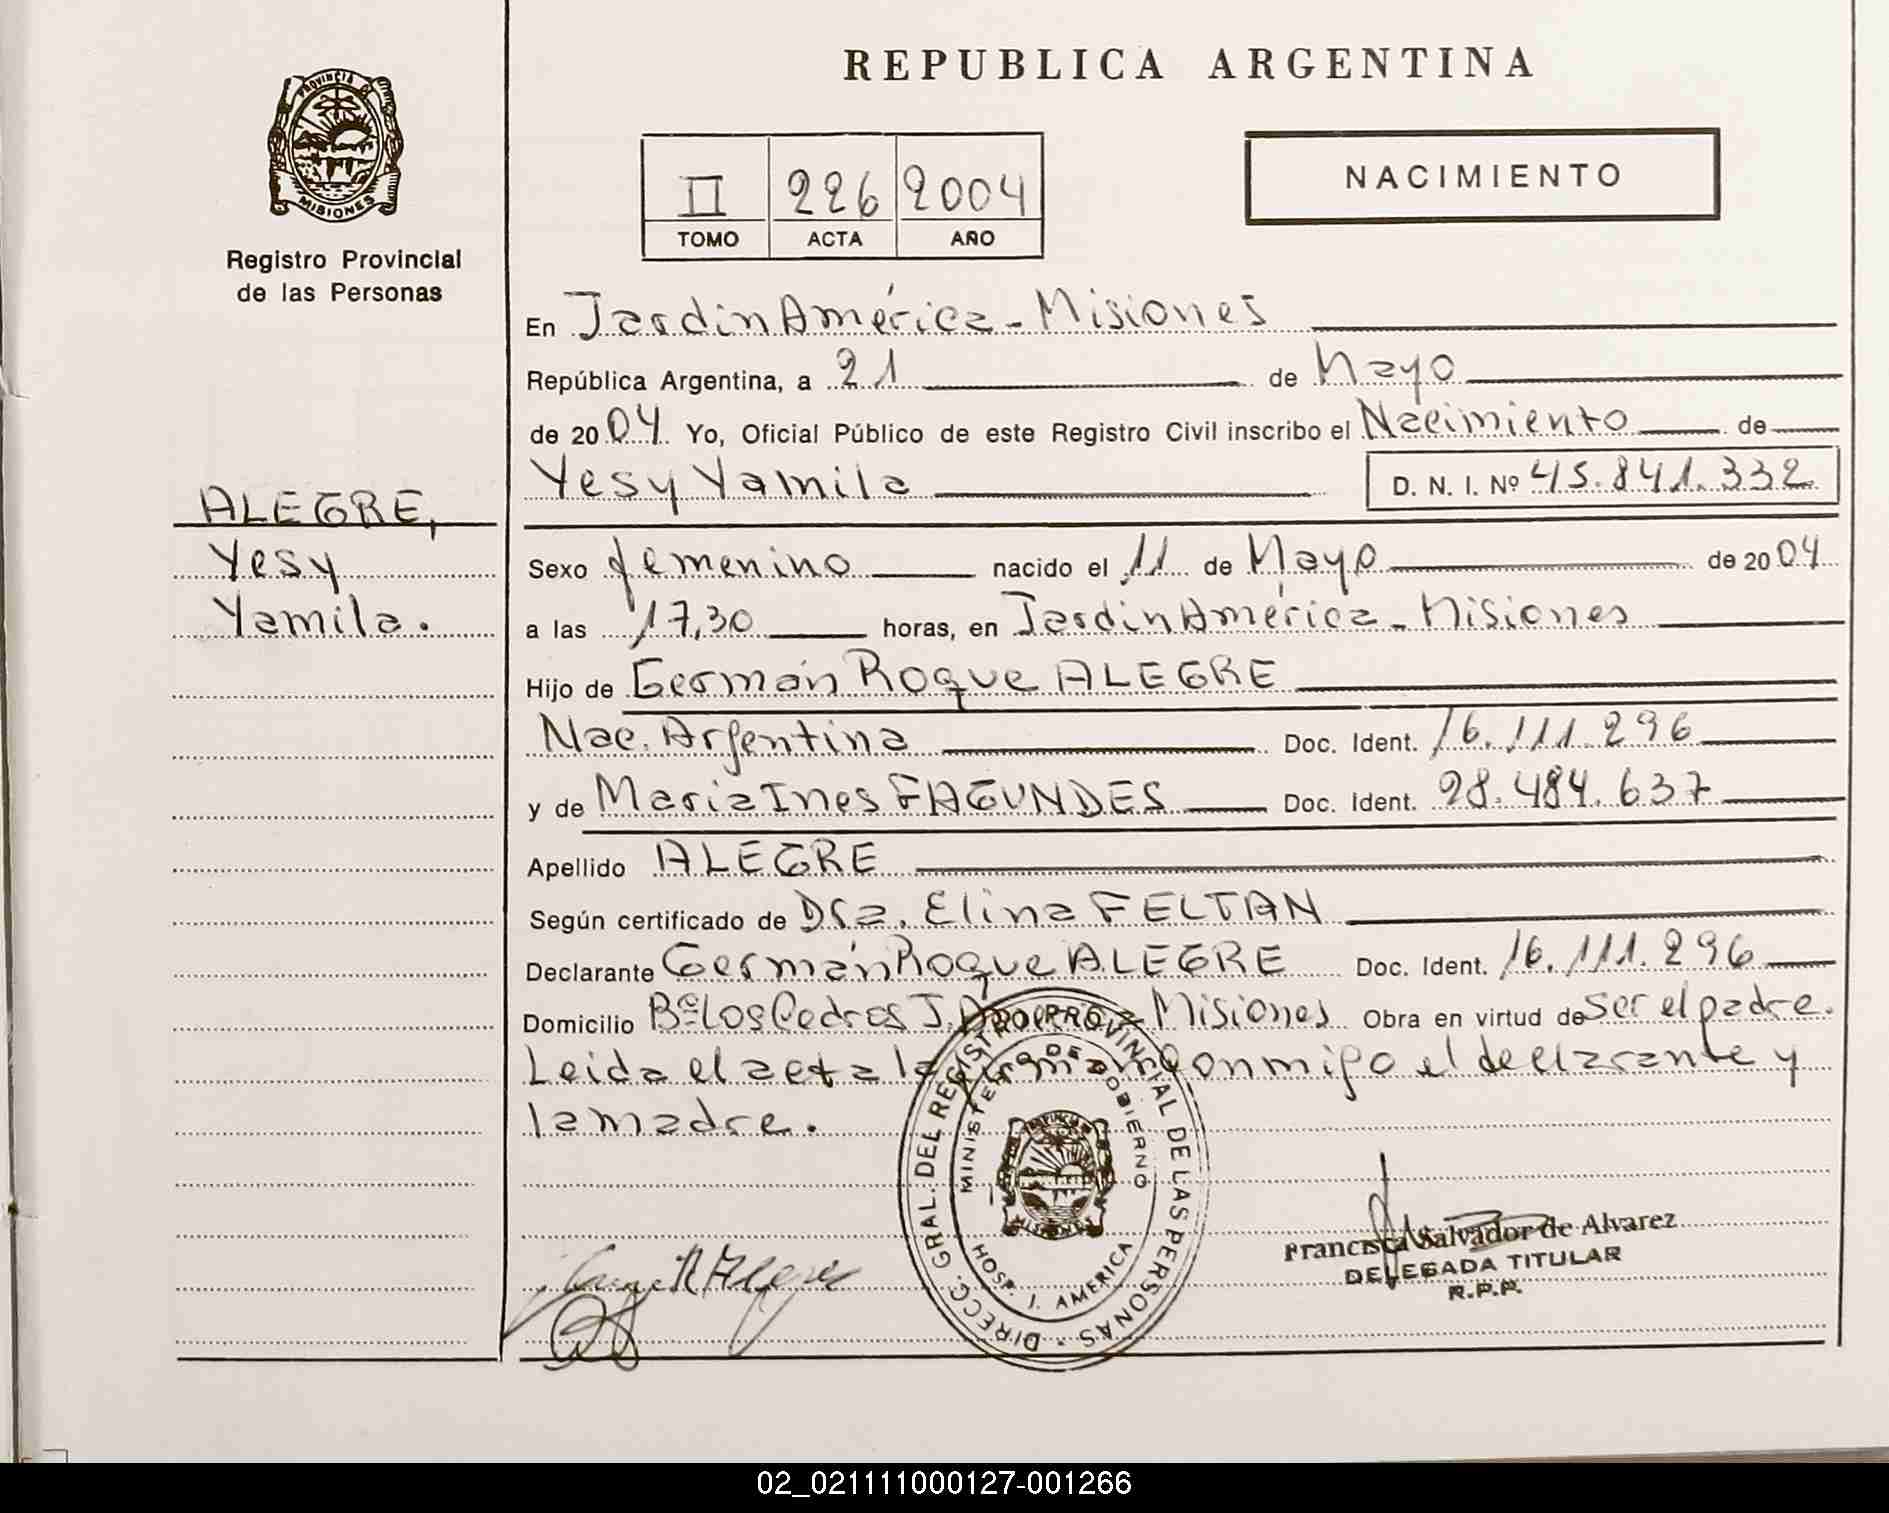 PROVINCIA DE
MISIONES
Registro Provincial
de las Personas
ALEGRE,
Yesy
Yamila.
REPUBLICA ARGENTINA
II 226 2004
TOMO ACTA AÑO
NACIMIENTO
En Jardin América - Misiones
República Argentina, a 21 de Mayo
de 2004. Yo, Oficial Público de este Registro Civil inscribo el Nacimiento de
Yesy Yamila D. N. I. Nº 45.841.332
Sexo femenino nacido el 11 de Mayo de 2004
a las 17,30 horas, en Jardin América - Misiones
Hijo de Germán Roque ALEGRE
Nac. Argentina Doc. Ident. 16.111.296
y de Maria Ines FAGUNDES Doc. Ident. 28.484.637
Apellido ALEGRE
Según certificado de Dra. Elina FELTAN
Declarante Germán Roque ALEGRE Doc. Ident. 16.111.296
Domicilio Bº Los Cedros J. Misiones Obra en virtud de ser el padre.
Leida el acta la conmigo el declarante y
la madre.
DIRECC. GRAL. DEL REGISTRO PROVINCIAL DE LAS PERSONAS
MINISTERIO DE GOBIERNO
HOSP. J. AMERICA
Francisca Salvador de Alvarez
DELEGADA TITULAR
R.P.P.
02_021111000127-001266